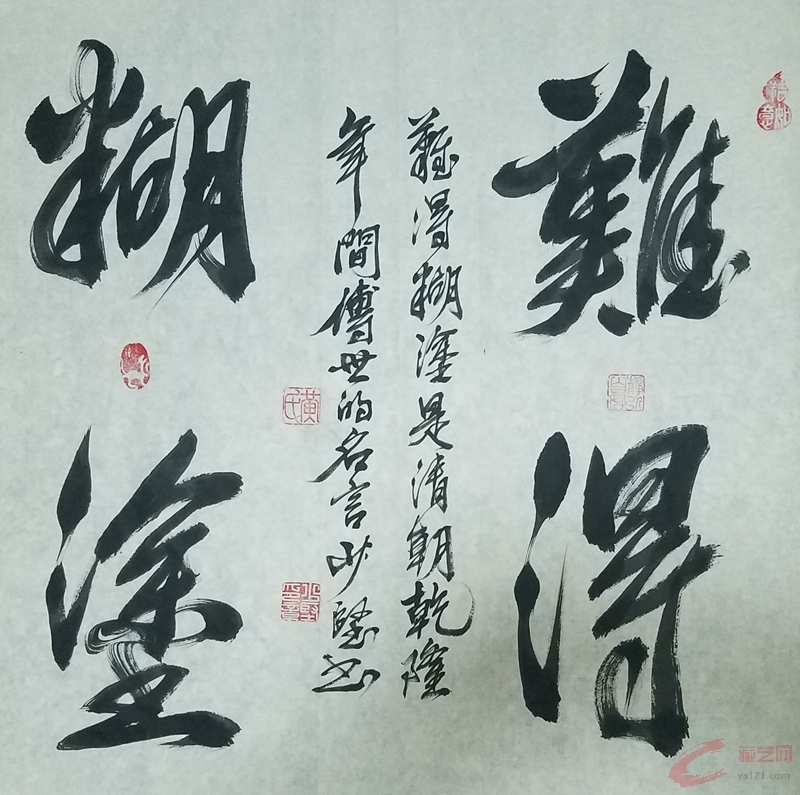 難得
糊塗
難得糊塗是清朝乾隆
年間傳世的名言少堅書
黃氏
藏艺网
ya121.com